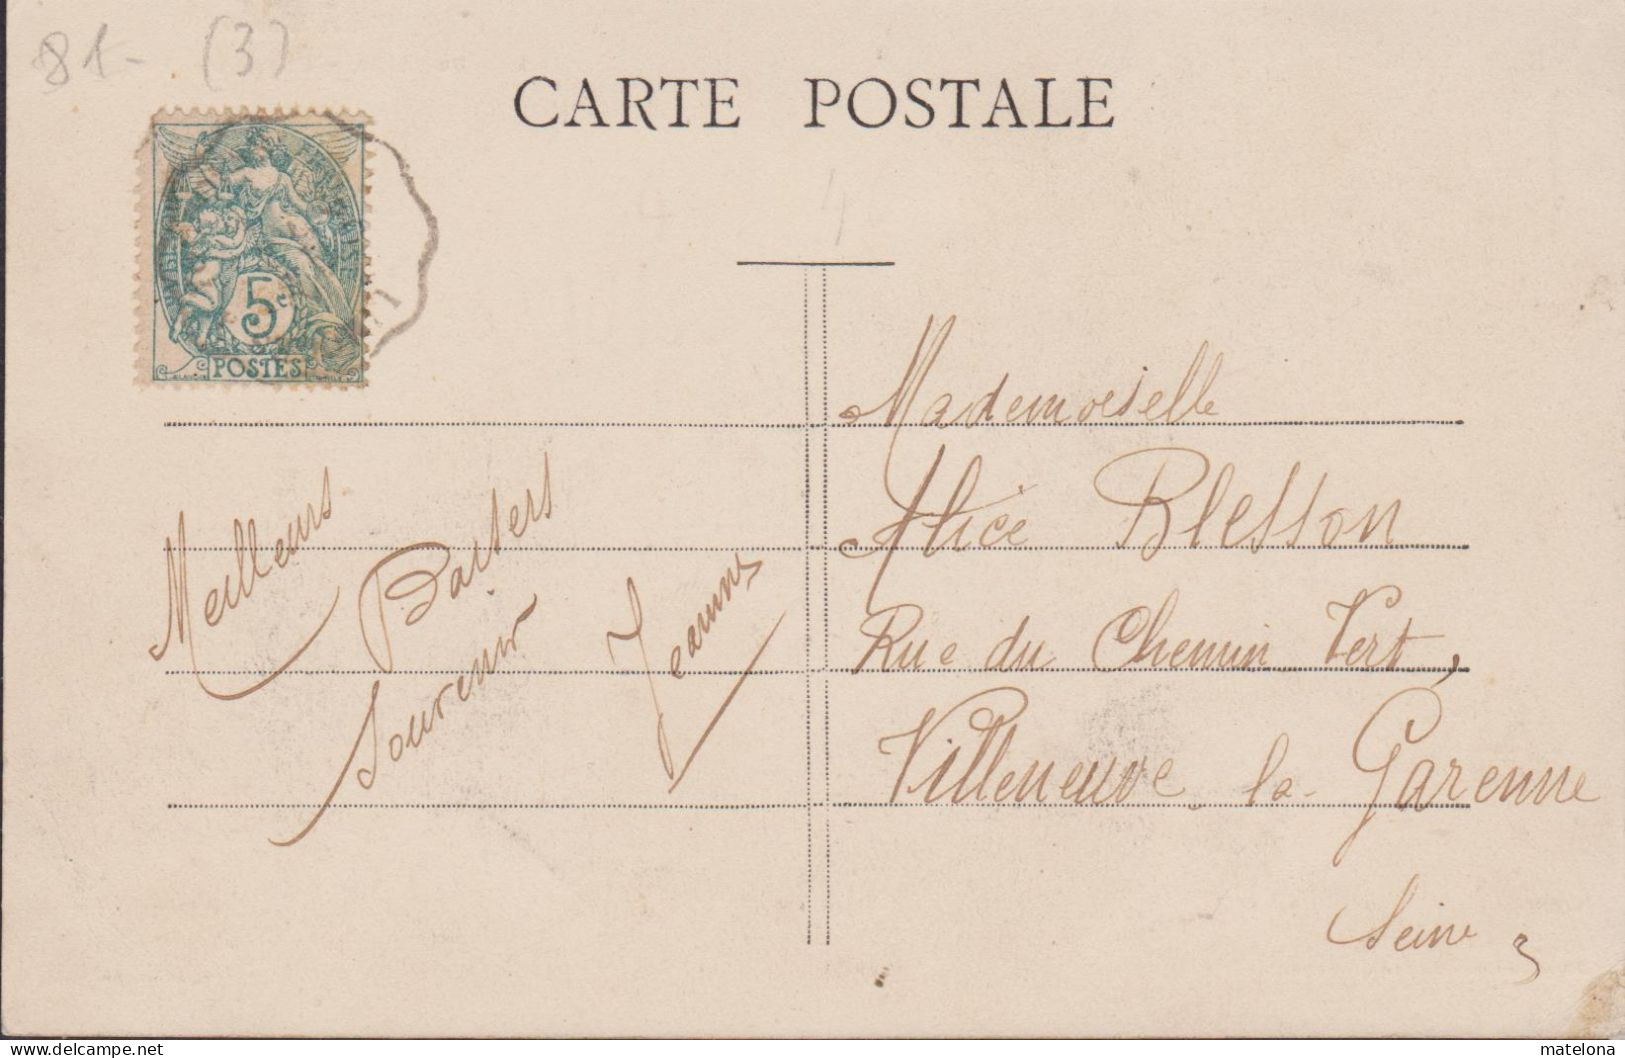 81- (3)
CARTE POSTALE
5c
POSTES
Meilleurs
Baisers
Souvenir
Jeanne
Mademoiselle
Alice Blesson
Rue du Chemin Vert,
Villeneuve-la-Garenne
Seine
delcampe.net
matelona